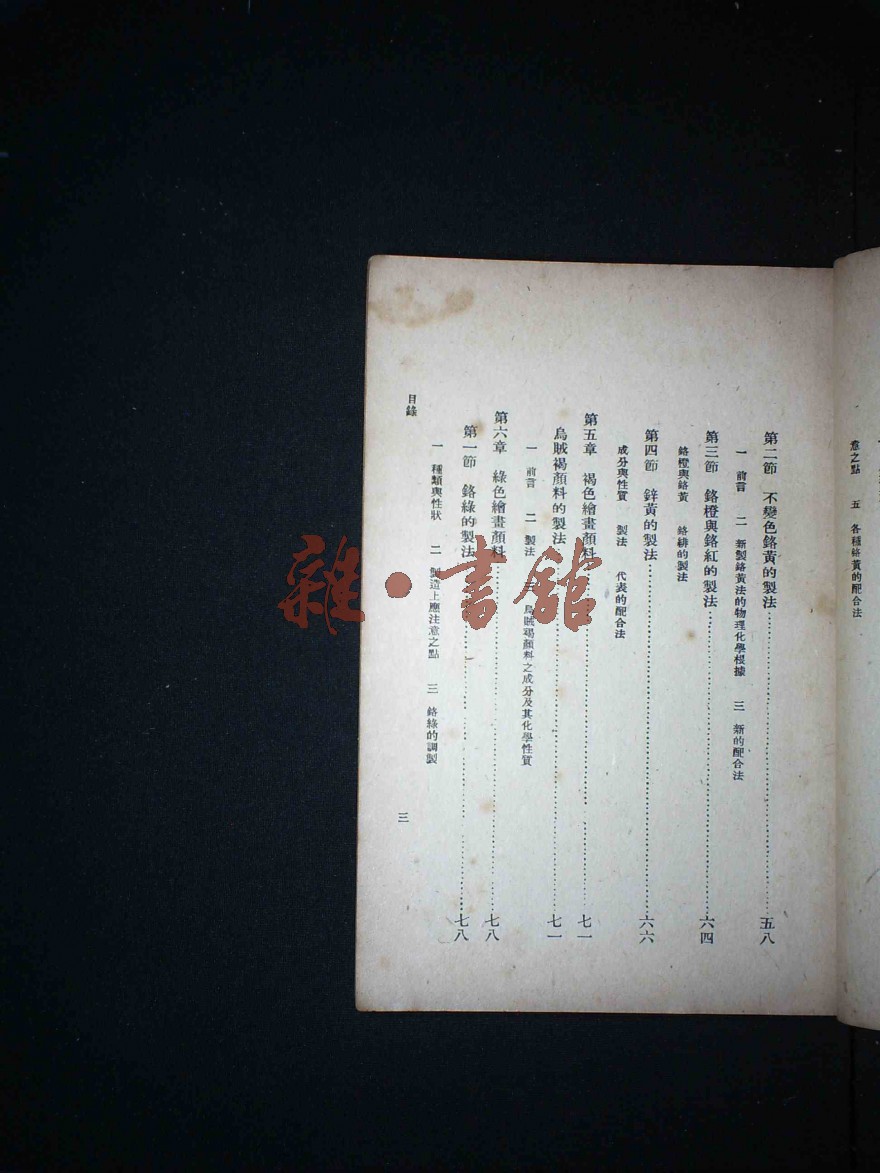 意之點　五　各種鉻黃的配合法
第二節　不變色鉻黃的製法……五八
一　前言　二　新製鉻黃法的物理化學根據　三　新的配合法
第三節　鉻橙與鉻紅的製法……六四
鉻橙與鉻黃　鉻緋的製法
第四節　鋅黃的製法……六六
成分與性質　製法　代表的配合法
第五章　褐色繪畫顏料……七一
烏賊褐顏料的製法……七一
一　前言　二　製法　三　烏賊褐顏料之成分及其化學性質
第六章　綠色繪畫顏料……七八
第一節　鉻綠的製法……七八
一　種類與性狀　二　製造上應注意之點　三　鉻綠的調製
目錄
三
雜·書館